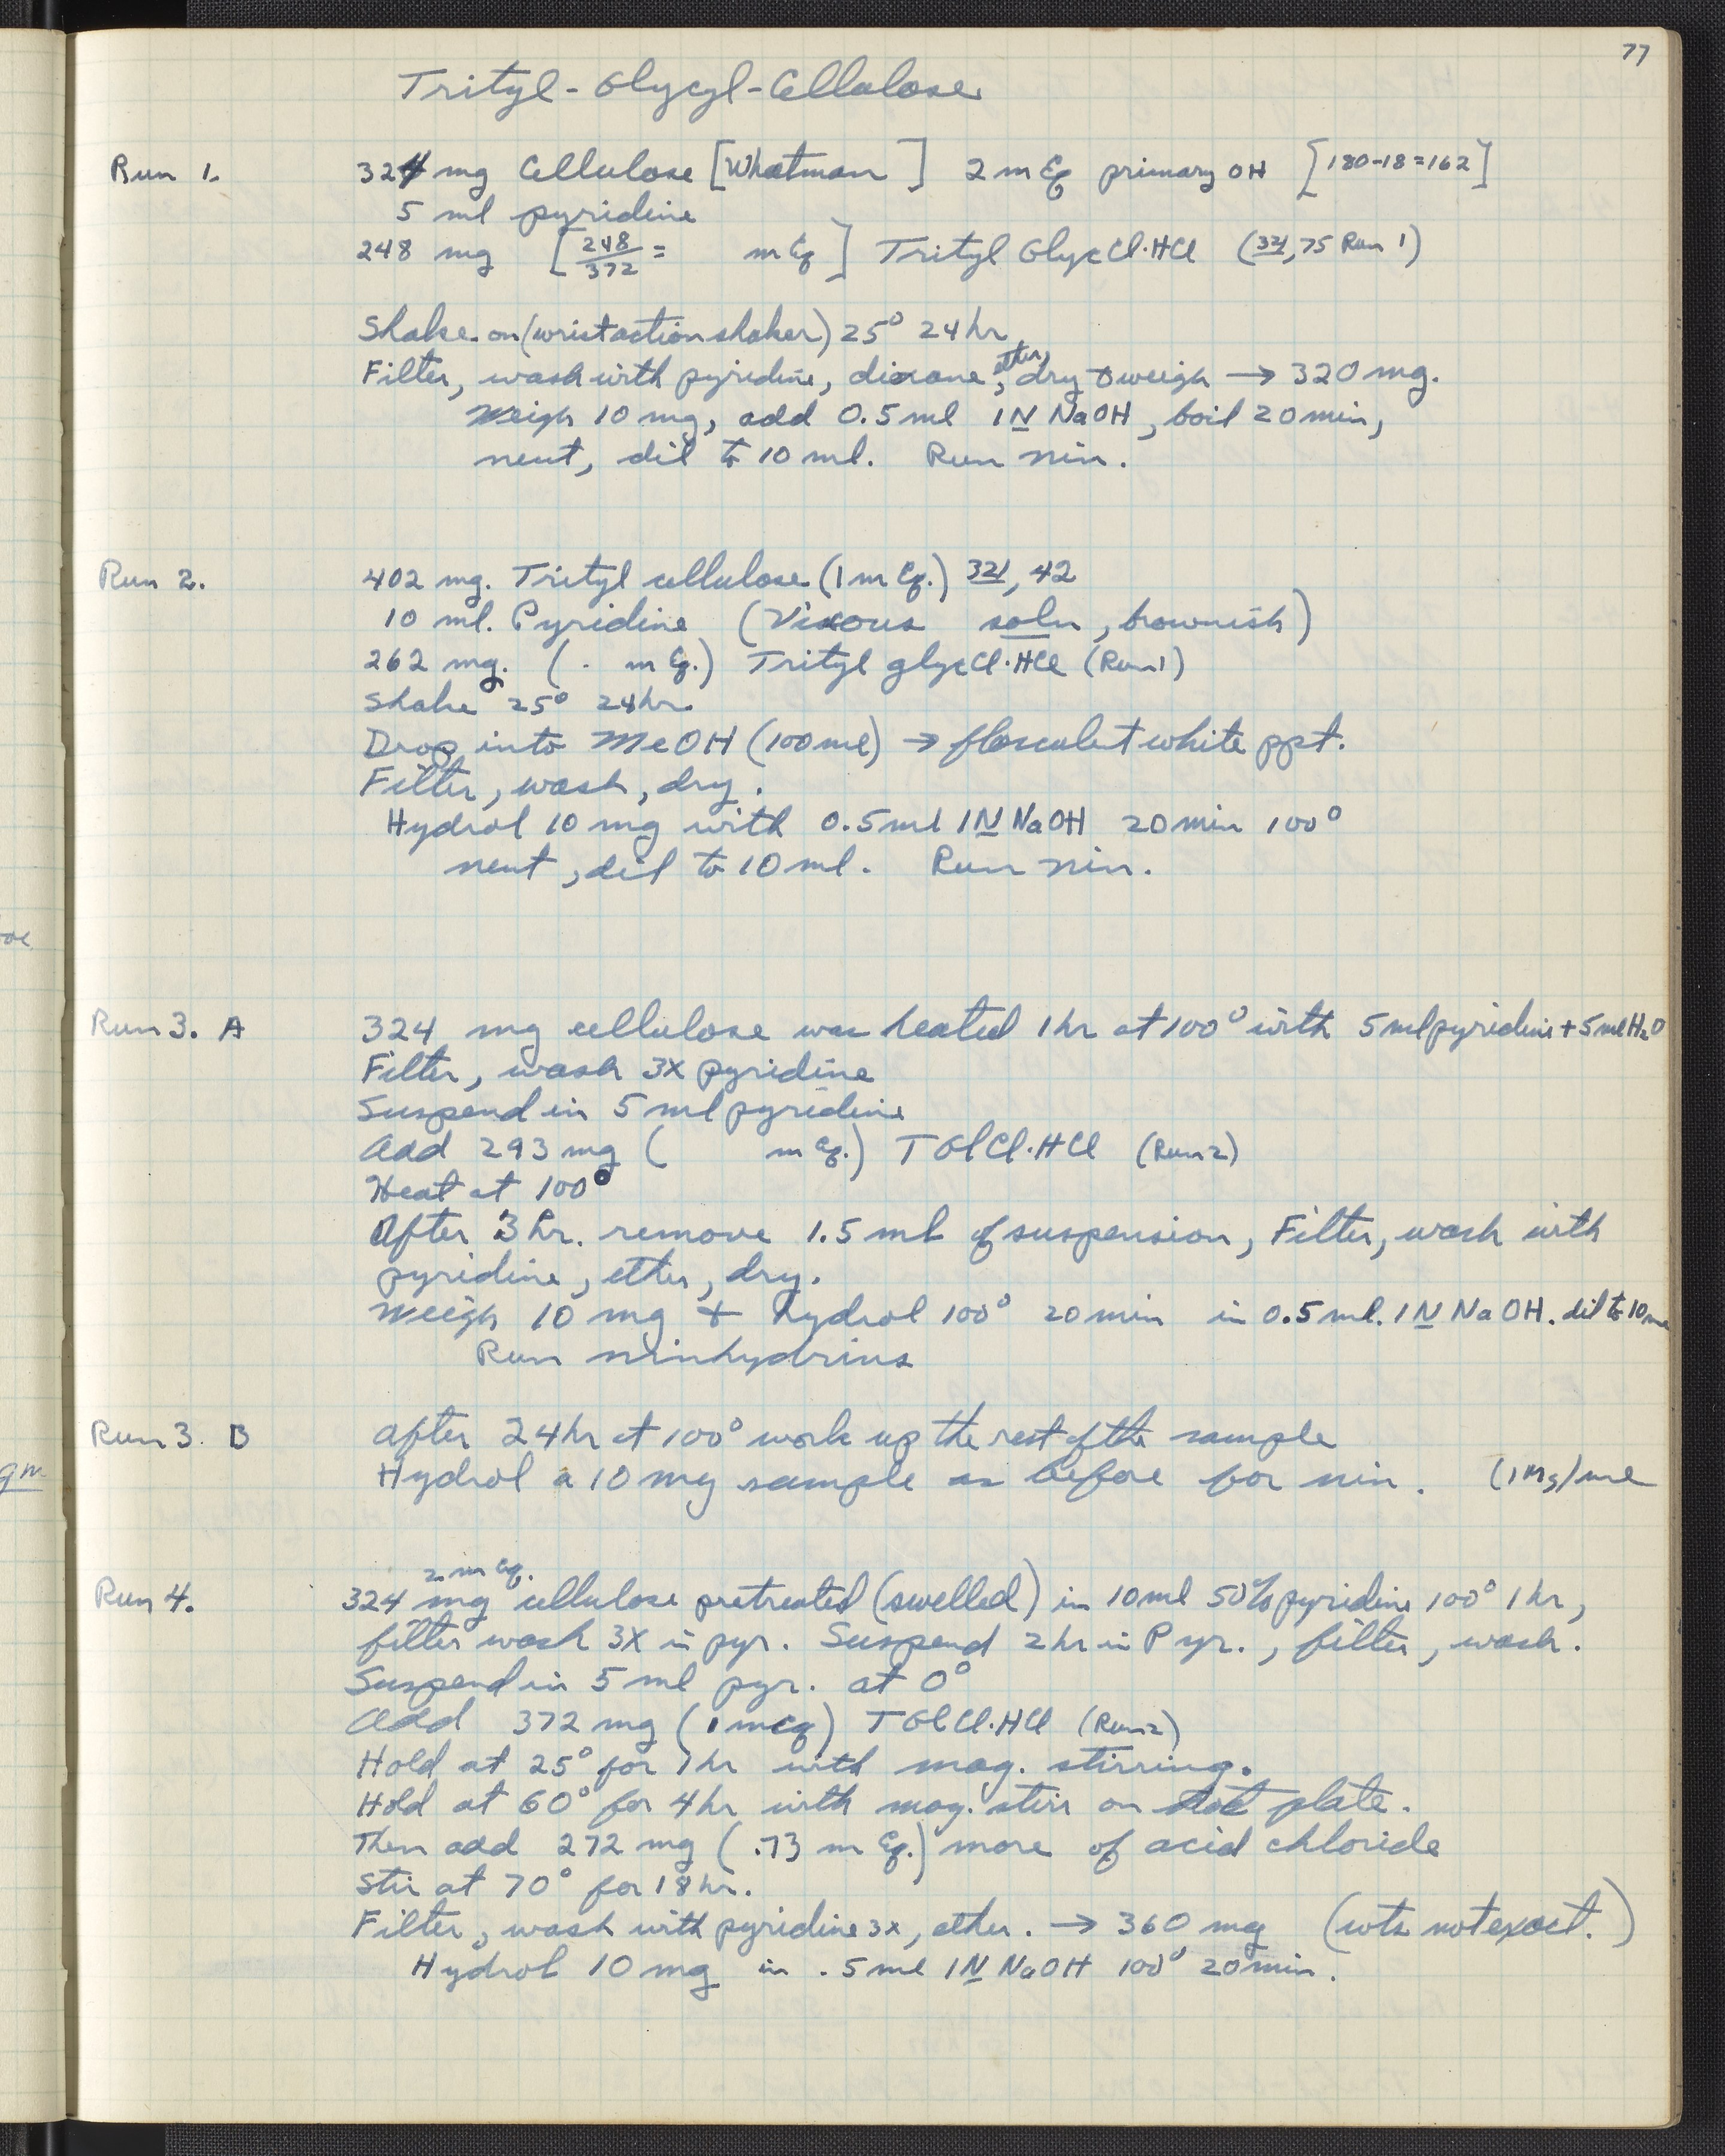 77
Trityl-Glycyl-Cellulose
Run 1. 324 mg Cellulose [Whatman ] 2 mEq primary OH [180-18=162]
5 ml pyridine
248 mg [248/372 = mEq] Trityl GlycCl·HCl (321, 75 Run 1)
Shake on (wrist action shaker) 25° 24 hr
Filter, wash with pyridine, dioxane, ether, dry & weigh → 320 mg.
Weigh 10 mg, add 0.5 ml 1N NaOH, boil 20 min,
neut, dil to 10 ml. Run nin.
Run 2. 402 mg. Trityl cellulose (1 mEq.) 321, 42
10 ml. Pyridine (Viscous soln, brownish)
262 mg. ( . mEq.) Trityl glycCl·HCl (Run 1)
Shake 25° 24 hr
Drop into MeOH (100 ml) → flocculent white ppt.
Filter, wash, dry.
Hydrol 10 mg with 0.5 ml 1N NaOH 20 min 100°
neut, dil to 10 ml. Run nin.
ose
Run 3. A 324 mg cellulose was heated 1 hr at 100° with 5 ml pyridine + 5 ml H2O
Filter, wash 3X pyridine
Suspend in 5 ml pyridine
Add 293 mg ( mEq.) TGlCl·HCl (Run 2)
Heat at 100°
After 3 hr. remove 1.5 ml of suspension, Filter, wash with
pyridine, ether, dry.
Weigh 10 mg + hydrol 100° 20 min in 0.5 ml. 1N NaOH. dil to 10 ml
Run ninhydrins
Run 3. B After 24 hr at 100° work up the rest of the sample
gm
Hydrol a 10 mg sample as before for nin. (1 Mg)/ml
2 mEq.
Run 4. 324 mg cellulose pretreated (swelled) in 10 ml 50% pyridine 100° 1 hr,
filter wash 3X in pyr. Suspend 2 hr in Pyr., filter, wash.
Suspend in 5 ml pyr. at 0°
Add 372 mg (1 meq) TGlCl·HCl (Run 2)
Hold at 25° for 1 hr with mag. stirring.
Hold at 60° for 4 hr with mag. stirr on hot plate.
Then add 272 mg (.73 mEq.) more of acid chloride
Stir at 70° for 18 hr.
Filter, wash with pyridine 3x, ether. → 360 mg (wts not exact.)
Hydrol 10 mg in .5 ml 1N NaOH 100° 20 min.